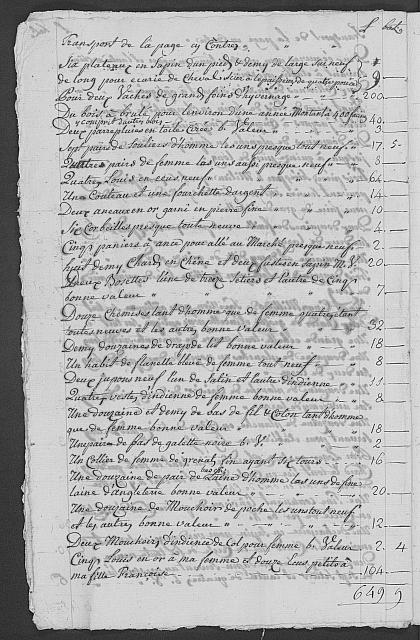 f. batz
Transport de la page cy Contre
Six plateaux en Sapin d'un pied & demy de large sur neuf
de long pour ecurie de Cheval 9
Pour deux Vaches de grand foin d'hyvernage 200
Du bois a brulé pour l'environ d'une année Montant a
y compris d'autre bois 40
Deux parrepluies en toile Cirée b. Valeur 3
Sept paire de Souliers d'homme les uns presque tout neuf 17 5
Quattres pairs de femme las uns aussi presque neuf 8
Quatres Louis en ecus neufs 64
Un Couteau et une fourchette d'argent 14
Deux aneaux en or garni en pierre fine 10
Six Corbeilles presque toute neuve 4
Cinq paniers a ance pour allé au Marché presque neuf 2
huit demy Chars en Chêne et deux fustes en Sapin b. V. 20
Deux Bosettes l'une de troize Setiers et l'autre de Cinq
bonne valeur 7
Douze Chemises tant d'homme que de femme quatres tant
toutes neuves et les autres bonne valeur 32
Demy douzaines de drap de lit bonne valeur 18
Un habit de flenelle bleue de femme tout neuf 8
Deux jupons neuf l'un de Satin et l'autre d'indienne 11
Quatres vestes d'indienne de femme bonne valeur 8
Une douzaine et demy de bas de fil & Coton tant d'homme
que de femme bonne valeur 18
Une paire de bas de galette noire b. V. 2
Un Collier de femme de grenats fin ayant Six tours 16
Une douzaine de pair de bas de Laine d'homme las uns de fine
laine d'Angleterre bonne valeur 20
Une douzaine de Mouchoir de poche les uns tout neuf
et les autres bonne valeur 12
Deux Mouchoirs d'indience de Col pour femme b. Valeur 2 4
Cinq Louis en or à ma femme et douze Ecus petits à
ma fille Françoise 104
649 9